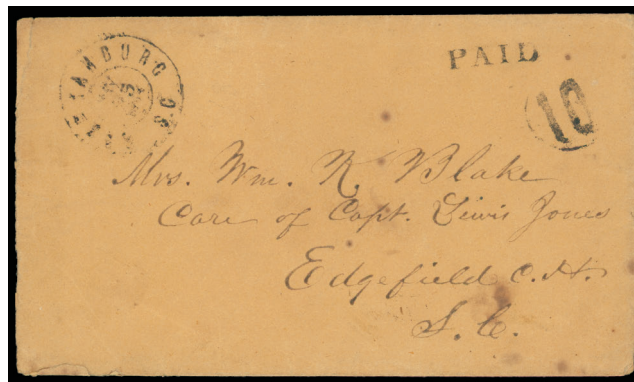 HAMBURG
PAID
10
Mrs. Wm. R. Blake
Care of Capt. Lewis Jones
Edgefield C.H.
S.C.